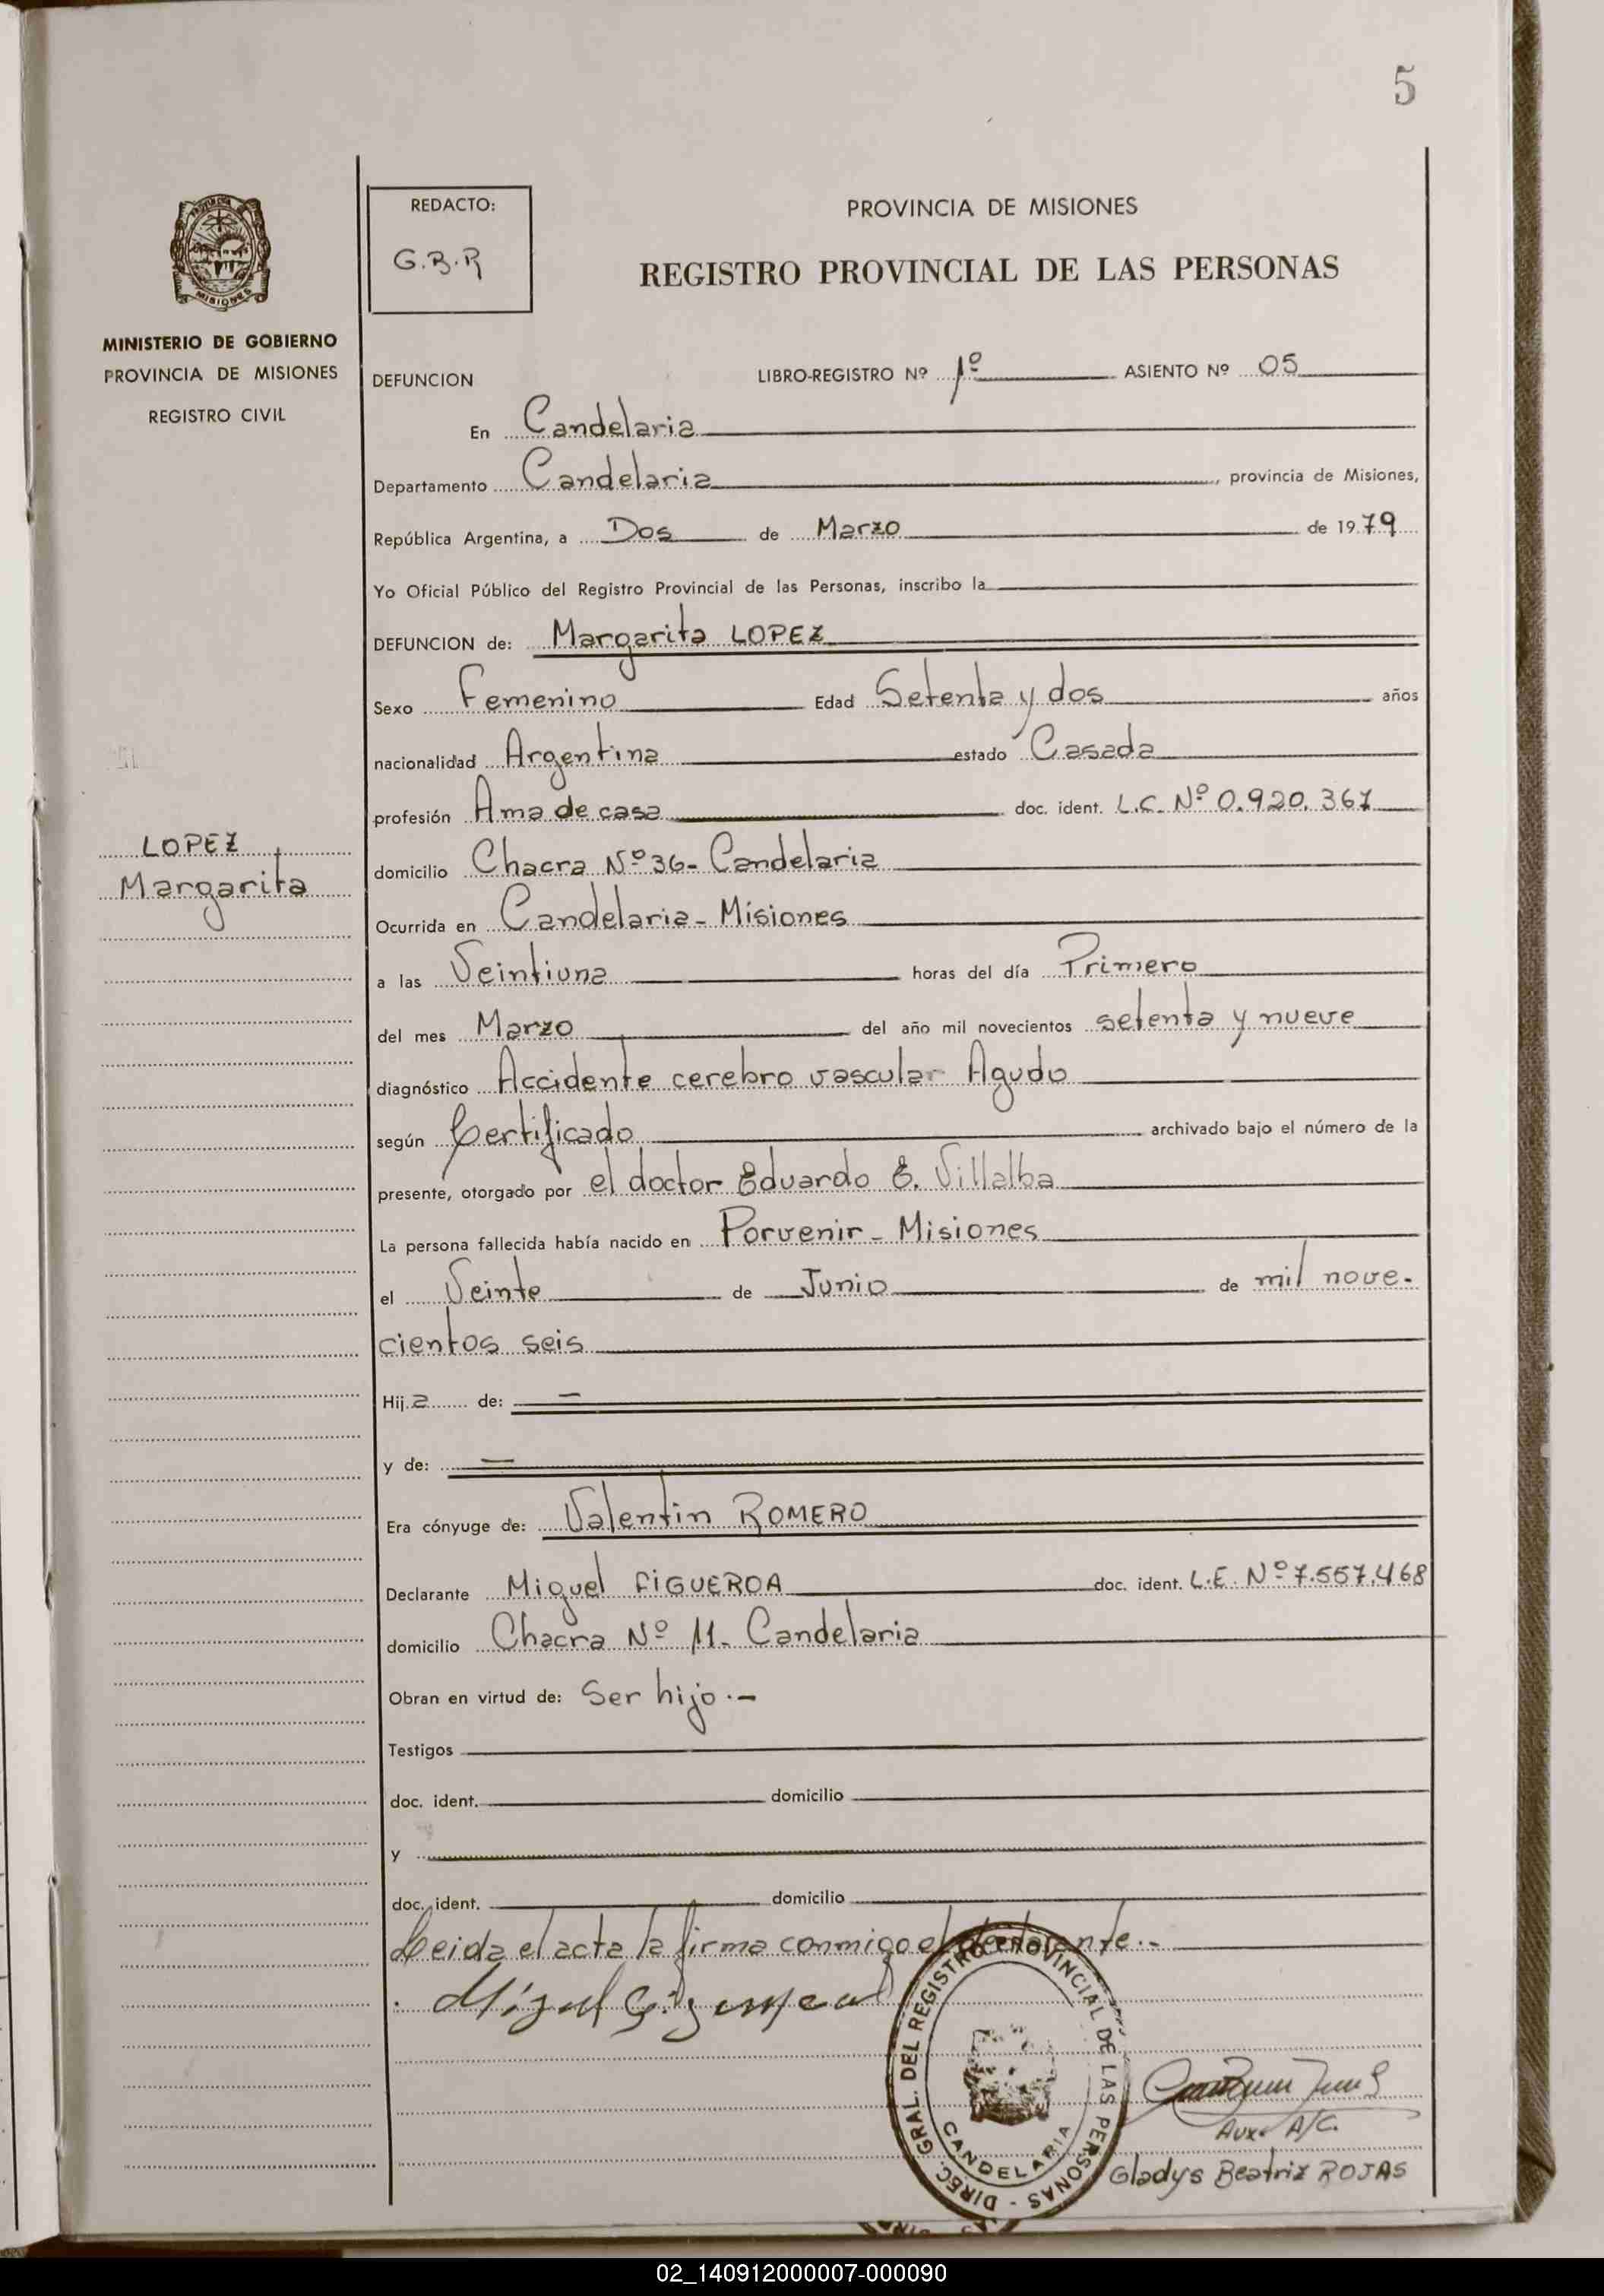 5
PROVINCIA DE MISIONES
MINISTERIO DE GOBIERNO
PROVINCIA DE MISIONES
REGISTRO CIVIL
LOPEZ
Margarita
REDACTO:
G.B.R
PROVINCIA DE MISIONES
REGISTRO PROVINCIAL DE LAS PERSONAS
DEFUNCION LIBRO-REGISTRO Nº 1º ASIENTO Nº 05
En Candelaria
Departamento Candelaria, provincia de Misiones,
República Argentina, a Dos de Marzo de 1979
Yo Oficial Público del Registro Provincial de las Personas, inscribo la
DEFUNCION de: Margarita LOPEZ
Sexo Femenino Edad Setenta y dos años
nacionalidad Argentina estado Casada
profesión Ama de casa doc. ident. L.C. Nº 0.920.367
domicilio Chacra Nº 36- Candelaria
Ocurrida en Candelaria - Misiones
a las Veintiuna horas del día Primero
del mes Marzo del año mil novecientos setenta y nueve
diagnóstico Accidente cerebro vascular Agudo
según Certificado archivado bajo el número de la
presente, otorgado por el doctor Eduardo E. Villalba
La persona fallecida había nacido en Porvenir - Misiones
el Veinte de Junio de mil nove-
cientos seis
Hija de: —
y de: —
Era cónyuge de: Valentin ROMERO
Declarante Miguel FIGUEROA doc. ident. L.E. Nº 7.557.468
domicilio Chacra Nº 11- Candelaria
Obran en virtud de: Ser hijo.-
Testigos
doc. ident. domicilio
y
doc. ident. domicilio
Leida el acta la firma conmigo el declarante.-
DIREC. GRAL. DEL REGISTRO PROVINCIAL DE LAS PERSONAS -
CANDELARIA
Aux. A/C.
Gladys Beatriz ROJAS
02_140912000007-000090